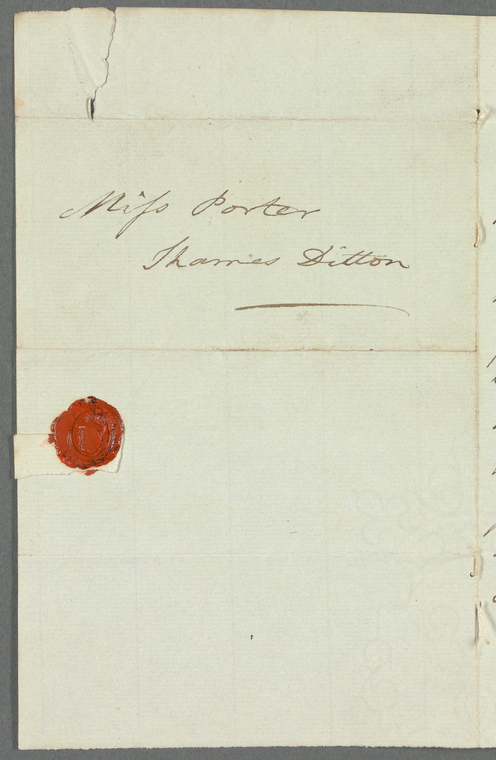 Miſs Porter
Thames Ditton